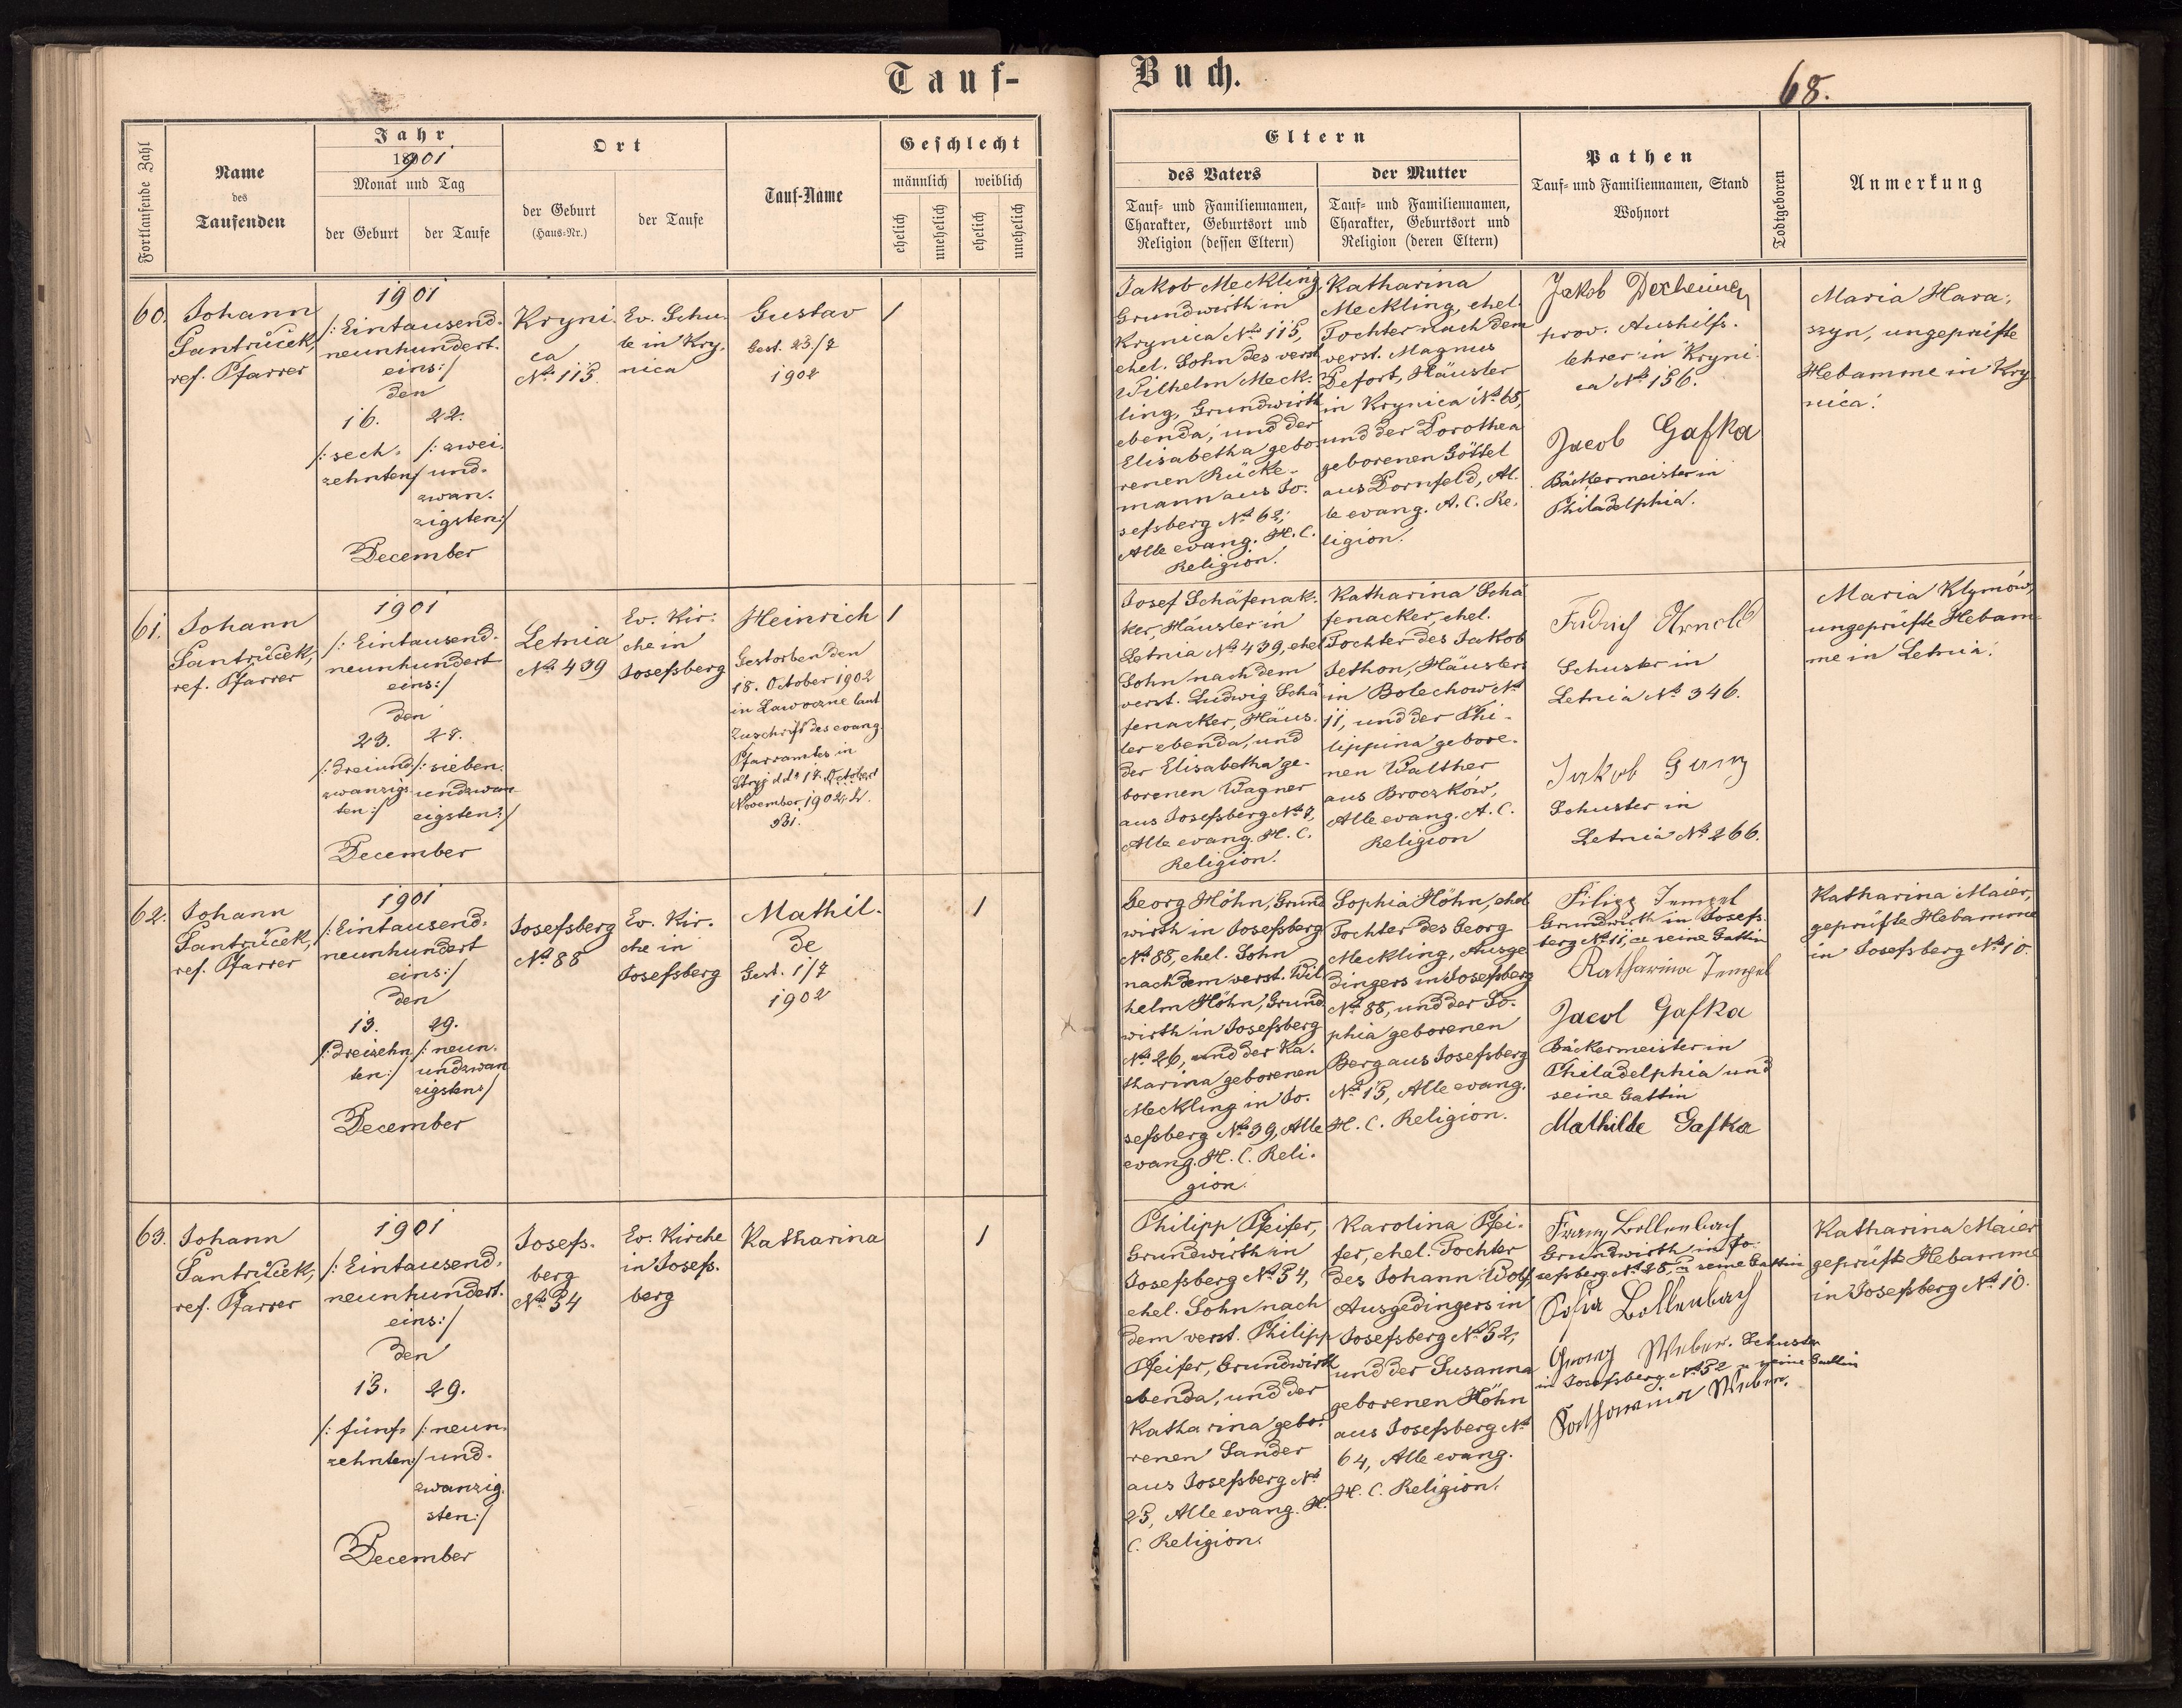 Tauf-
Buch.
68.
Fortlaufende Zahl
Name
des
Taufenden
Jahr
1901
Monat und Tag
der Geburt
der Taufe
Ort
der Geburt
(Haus-Nr.)
der Taufe
Tauf-Name
Geschlecht
männlich
weiblich
ehelich
unehelich
ehelich
unehelich
Eltern
des Vaters
Tauf- und Familiennamen,
Charakter, Geburtsort und
Religion (dessen Eltern)
der Mutter
Tauf- und Familiennamen,
Charakter, Geburtsort und
Religion (deren Eltern)
Pathen
Tauf- und Familiennamen, Stand
Wohnort
Todtgeboren
Anmerkung
60.
Johann
Santrůček,
ref. Pfarrer
1901
/: Eintausend-
neunhundert-
eins :/
den
16. 22.
/: sech- /: zwei-
zehnten :/ und-
zwan-
zigsten :/
December
Kryni-
ca
No 115.
Ev. Schu-
le in Kry-
nica
Gustav
Gest. 23./7
1902
1
Jakob Meckling,
Grundwirth in
Krynica No 115,
ehel. Sohn des verst.
Wilhelm Meck-
ling, Grundwirth
ebenda, und der
Elisabetha gebo-
renen Rücke-
mann aus Jo-
sefsberg No 62,
Alle evang. H. C.
Religion.
Katharina
Meckling, ehel.
Tochter nach dem
verst. Magnus
Defort, Häusler
in Krynica No 65,
und der Dorothea
geborenen Göttel
aus Dornfeld, Al-
le evang. A. C. Re-
ligion.
Jakob Dexheimer
prov. Aushilfs-
lehrer in Kryni-
ca No 156.
Jacob Gafka
Bäckermeister in
Philadelphia.
Maria Hara-
szyn, ungeprüfte
Hebamme in Kry-
nica.
61.
Johann
Santrůček,
ref. Pfarrer
1901
/: Eintausend-
neunhundert
eins :/
den
23. 27.
/: dreiund- /: sieben-
zwanzigs- undzwan-
ten :/ zigsten :/
December
Letnia
No 439
Ev. Kir-
che in
Josefsberg
Heinrich
Gestorben den
18. October 1902
in Lawoczne laut
Zuschrift des evang.
Pfarramtes in
Stryj ddo 17. October
November 1902, Z.
331.
1
Josef Schäfenak-
ker, Häusler in
Letnia No 439, ehel.
Sohn nach dem
verst. Ludwig Schä-
fenacker, Häus-
ler ebenda, und
der Elisabetha ge-
borenen Wagner
aus Josefsberg No 7,
Alle evang. H. C.
Religion.
Katharina Schä-
fenacker, ehel.
Tochter des Jakob
Jethon, Häuslers
in Bolechow No
11, und der Phi-
lippina gebore-
nen Walther
aus Broczków,
Alle evang. A. C.
Religion
Fridrich Arnold
Schuster in
Letnia No 346.
Jakob Ganz
Schuster in
Letnia No 266.
Maria Klymów,
ungeprüfte Hebam-
me in Letnia.
62.
Johann
Santrůček,
ref. Pfarrer
1901
/: Eintausend-
neunhundert
eins :/
den
13. 29.
/: dreizehn- /: neun-
ten :/ undzwan-
zigsten :/
December
Josefsberg
No 88
Ev. Kir-
che in
Josefsberg
Mathil-
de
Gest. 1/7
1902
1
Georg Höhn, Grund-
wirth in Josefsberg
No 88, ehel. Sohn
nach dem verst. Wil-
helm Höhn, Grund-
wirth in Josefsberg
No 26, und der Ka-
tharina geborenen
Meckling in Jo-
sefsberg No 39, Alle
evang. H. C. Reli-
gion.
Sophia Höhn, ehel.
Tochter des Georg
Meckling, Ausge-
dingers in Josefsberg
No 88, und der So-
phia geborenen
Berg aus Josefsberg
No 15, Alle evang.
H. C. Religion.
Filipp Tempel
Grundwirth in Josefs-
berg No 11, u. seine Gattin
Katharina Tempel
Jacob Gafka
Bäckermeister in
Philadelphia und
seine Gattin
Mathilde Gafka
Katharina Maier,
geprüfte Hebamme
in Josefsberg No 10.
63.
Johann
Santrůček,
ref. Pfarrer
1901
/: Eintausend-
neunhundert-
eins :/
den
15. 29.
/: fünf- /: neun-
zehnten :/ und-
zwanzig-
sten :/
December
Josefs-
berg
No 54
Ev. Kirche
in Josefs-
berg
Katharina
1
Philipp Pfeifer,
Grundwirth in
Josefsberg No 54,
ehel. Sohn nach
dem verst. Philipp
Pfeifer, Grundwirth
ebenda, und der
Katharina gebo-
renen Sander
aus Josefsberg No
25, Alle evang. H.
C. Religion.
Karolina Pfei-
fer, ehel. Tochter
des Johann Wolf,
Ausgedingers in
Josefsberg No 52,
und der Susanna
geborenen Höhn
aus Josefsberg No
64, Alle evang.
H. C. Religion.
Franz Bollenbach
Grundwirth in Jo-
sefsberg No 28, u. seine Gattin
Sofia Bollenbach
Georg Weber. Schuster
in Josefsberg No 52 u. seine Gattin
Katharina Weber.
Katharina Maier
geprüfte Hebamme
in Josefsberg No 10.